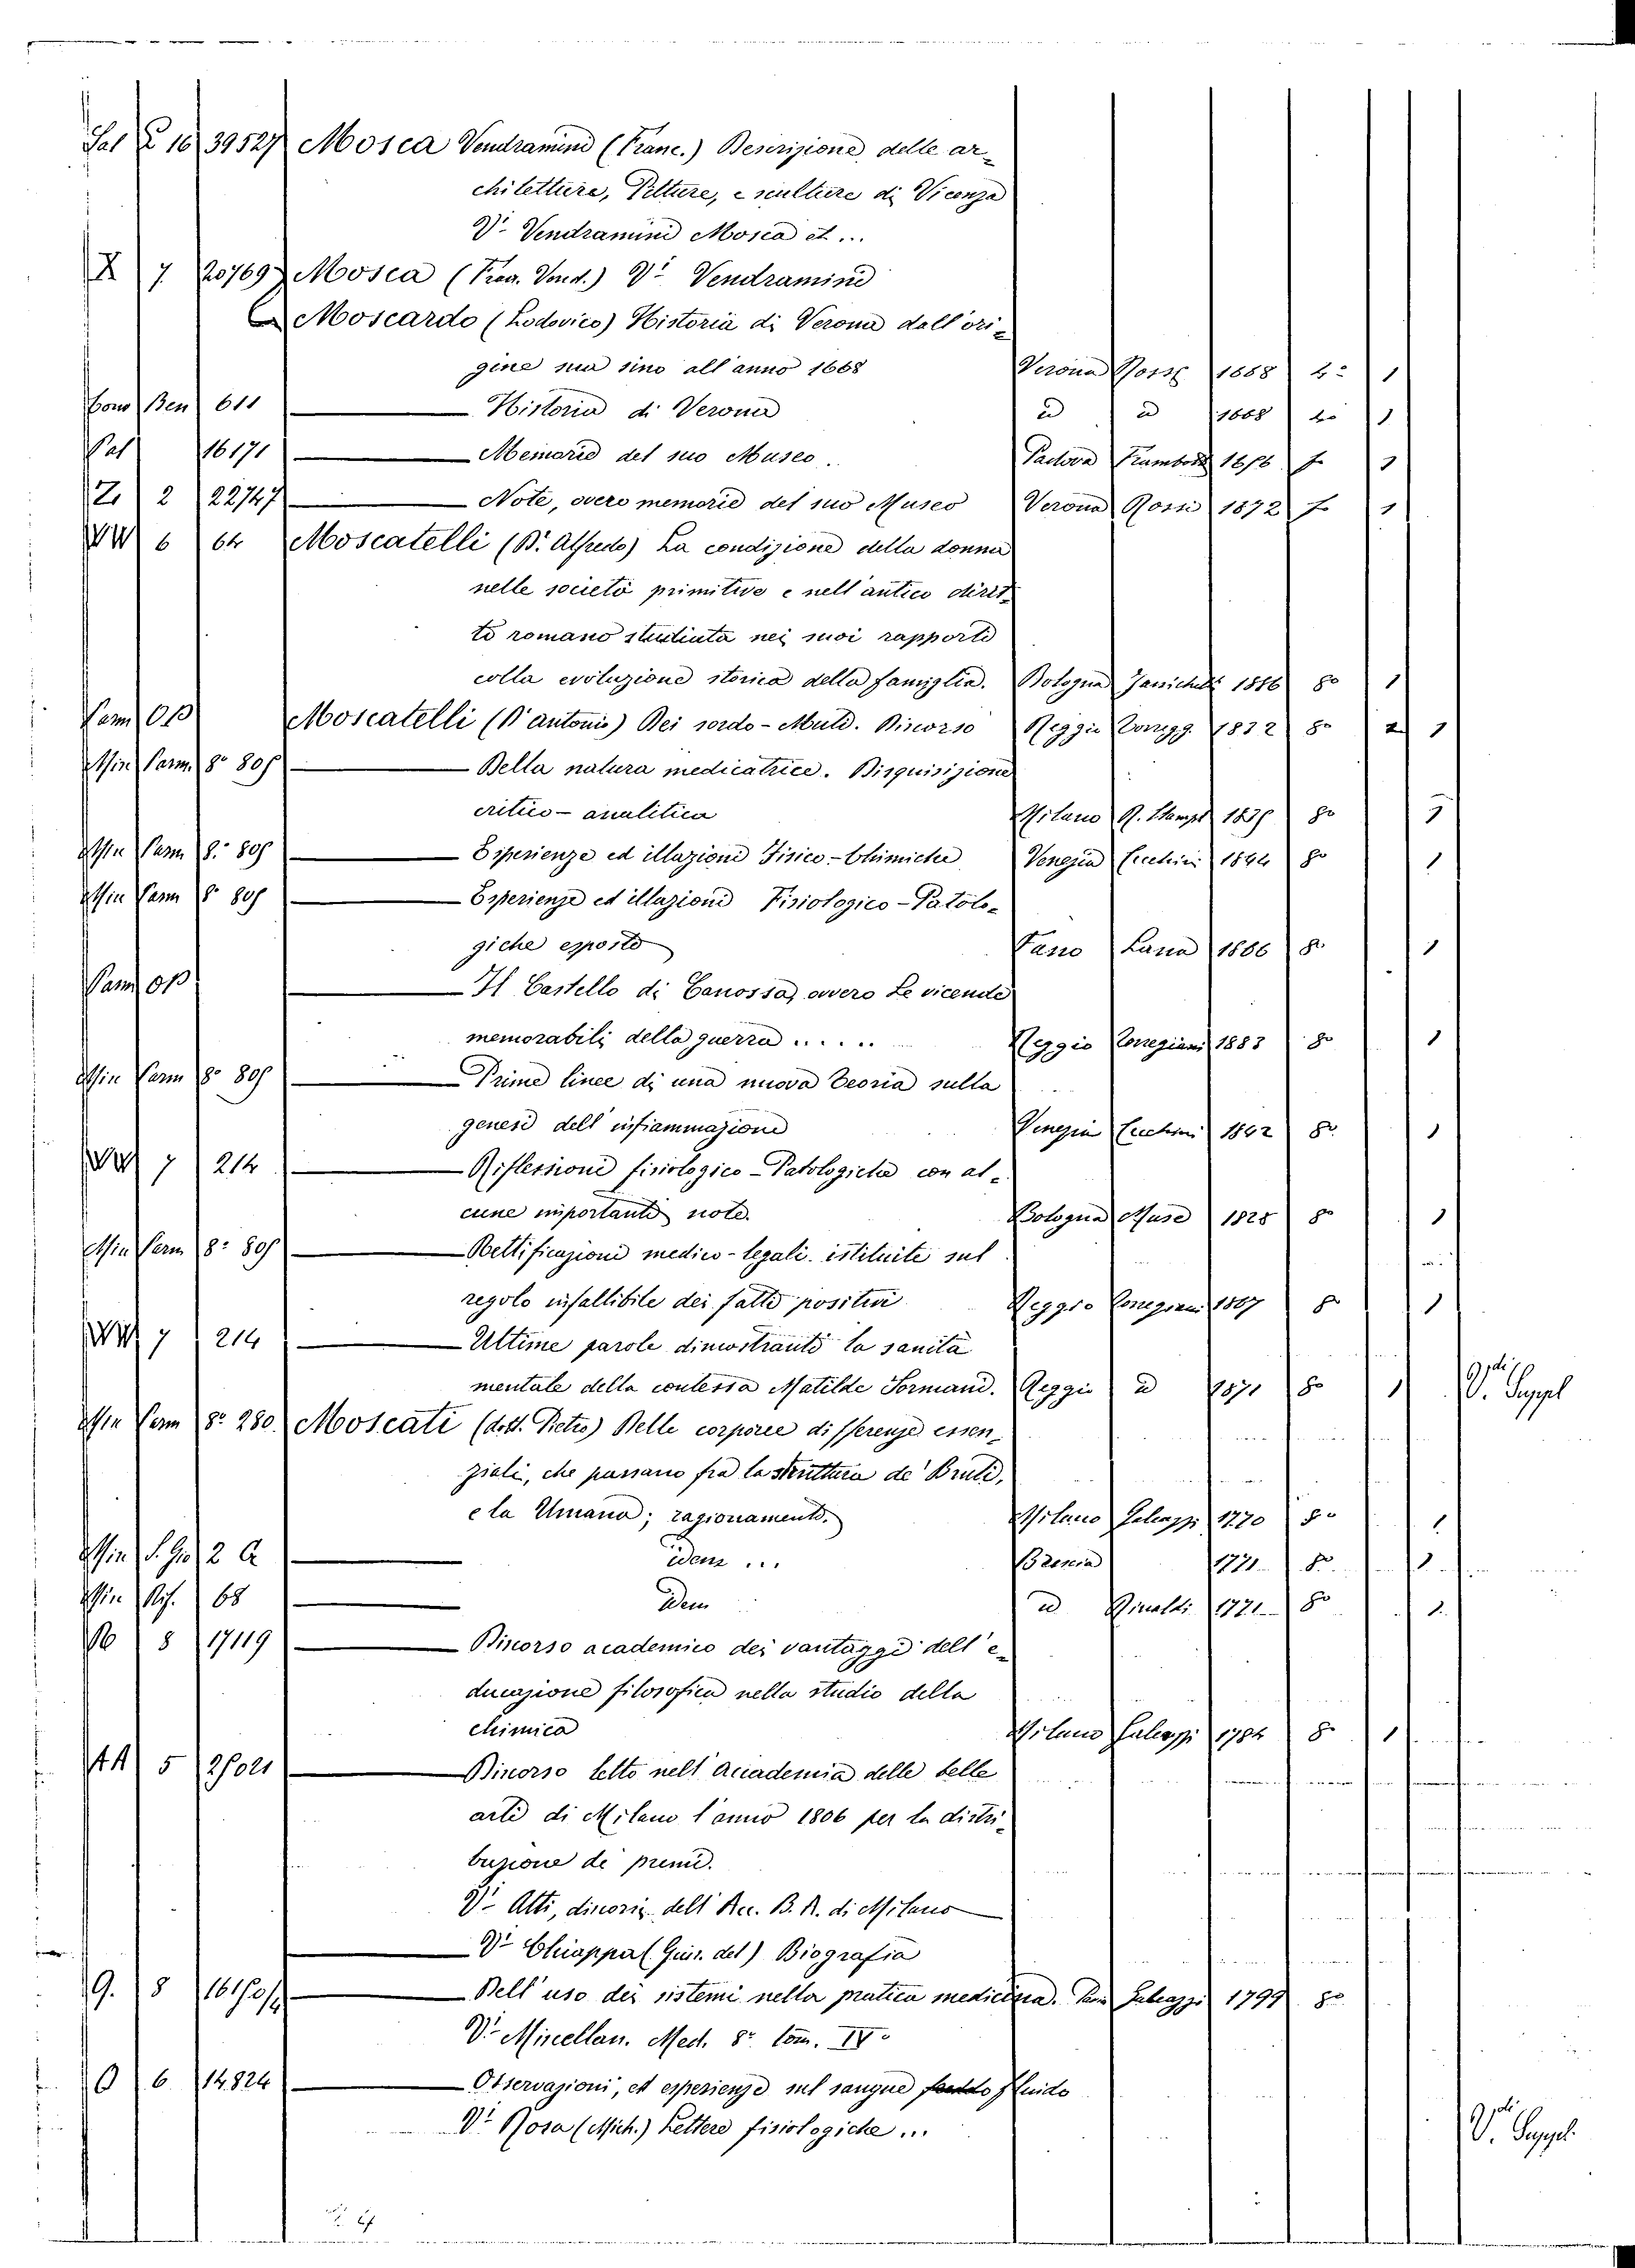 Sal E 16 39527 Mosca Vendramini (Franc.) Descrizione delle ar-
chitetture, Pitture, e sculture di Vicenza
Vi. Vendramini Mosca et...
X 7 20769 Mosca (Fran. Vend.) Vi. Vendramini
Moscardo (Lodovico) Historia di Verona dall'ori-
gine sua sino all'anno 1668 Verona Rossi 1668 4o 1
Ben 611 Historia di Verona id id 1668 4o 1
Pal 16171 Memorie del suo Museo. Padova Frambott 1656 f 1
Z. 2 22747 Note, overo memorie del suo Museo Verona Rossi 1672 f 1
WW 6 64 Moscatelli (D. Alfredo) La condizione della donna
nelle società primitive e nell'antico dirit-
to romano studiata nei suoi rapporti
colla evoluzione storica della famiglia. Bologna Zanichelli 1886 8o 1
Parm Op Moscatelli (D. Antonio) Dei sordo-Muti. Discorso Reggio Torregg. 1832 8o 2 1
Min Parm. 8o 805 Della natura medicatrice. Disquisizione
critico-analitica Milano R. Stamp. 1835 8o 1
Min Parm 8o 805 Esperienze ed illazioni Fisico-Chimiche Venezia Cecchini 1844 8o 1
Min Parm 8o 805 Esperienze ed illazioni Fisiologico-Patolo-
giche esposte Fano Lana 1866 8o 1
Parm Op Il Castello di Canossa, ovvero Le vicende
memorabili della guerra ..... Reggio Torregiani 1883 8o 1
Min Parm 8o 805 Prime linee di una nuova Teoria sulla
genesi dell'infiammazione Venezia Cecchini 1842 8o 1
WW 7 214 Riflessioni fisiologico-Patologiche con al-
cune importanti note. Bologna Muse 1828 8o 1
Min Parm 8o 805 Rettificazioni medico-legali istituite sul
regolo infallibile dei fatti positivi Reggio Torregiani 1867 8o 1
WW 7 214 Ultime parole dimostranti la sanità
mentale della contessa Matilde Sormani. Reggio id 1871 8o 1 Vdi. Suppl
Min Parm 8o 280 Moscati (dott. Pietro) Delle corporee differenze essen-
ziali, che passano fra la struttura de' Bruti,
e la Umana; ragionamento. Milano Galeazzi 1770 8o 1
Min S. Gio 2 A idem ... Brescia 1771 8o 1
Min Rif. 68 Idem id Rinaldi 1771 8o 1
8 17119 Discorso academico dei vantaggi dell'e-
ducazione filosofica nello studio della
chimica Milano Galeazzi 1784 8o 1
AA 5 25021 Discorso letto nell'Accademia delle belle
arti di Milano l'anno 1806 per la distri-
buzione de' premi.
Vi. Atti, discorsi dell'Acc. B. A. di Milano
Vi. Chiappa (Gius. del) Biografia
9. 8 16150/4 Dell'uso dei sistemi nella pratica medicina. Galeazzi 1799 8o
Vi. Miscellan. Med. 8o tom. IV.
O 6 14824 Osservazioni, ed esperienze sul sangue fluido
Vi. Rosa (Mich.) Lettere fisiologiche ...
Vdi. Suppl.